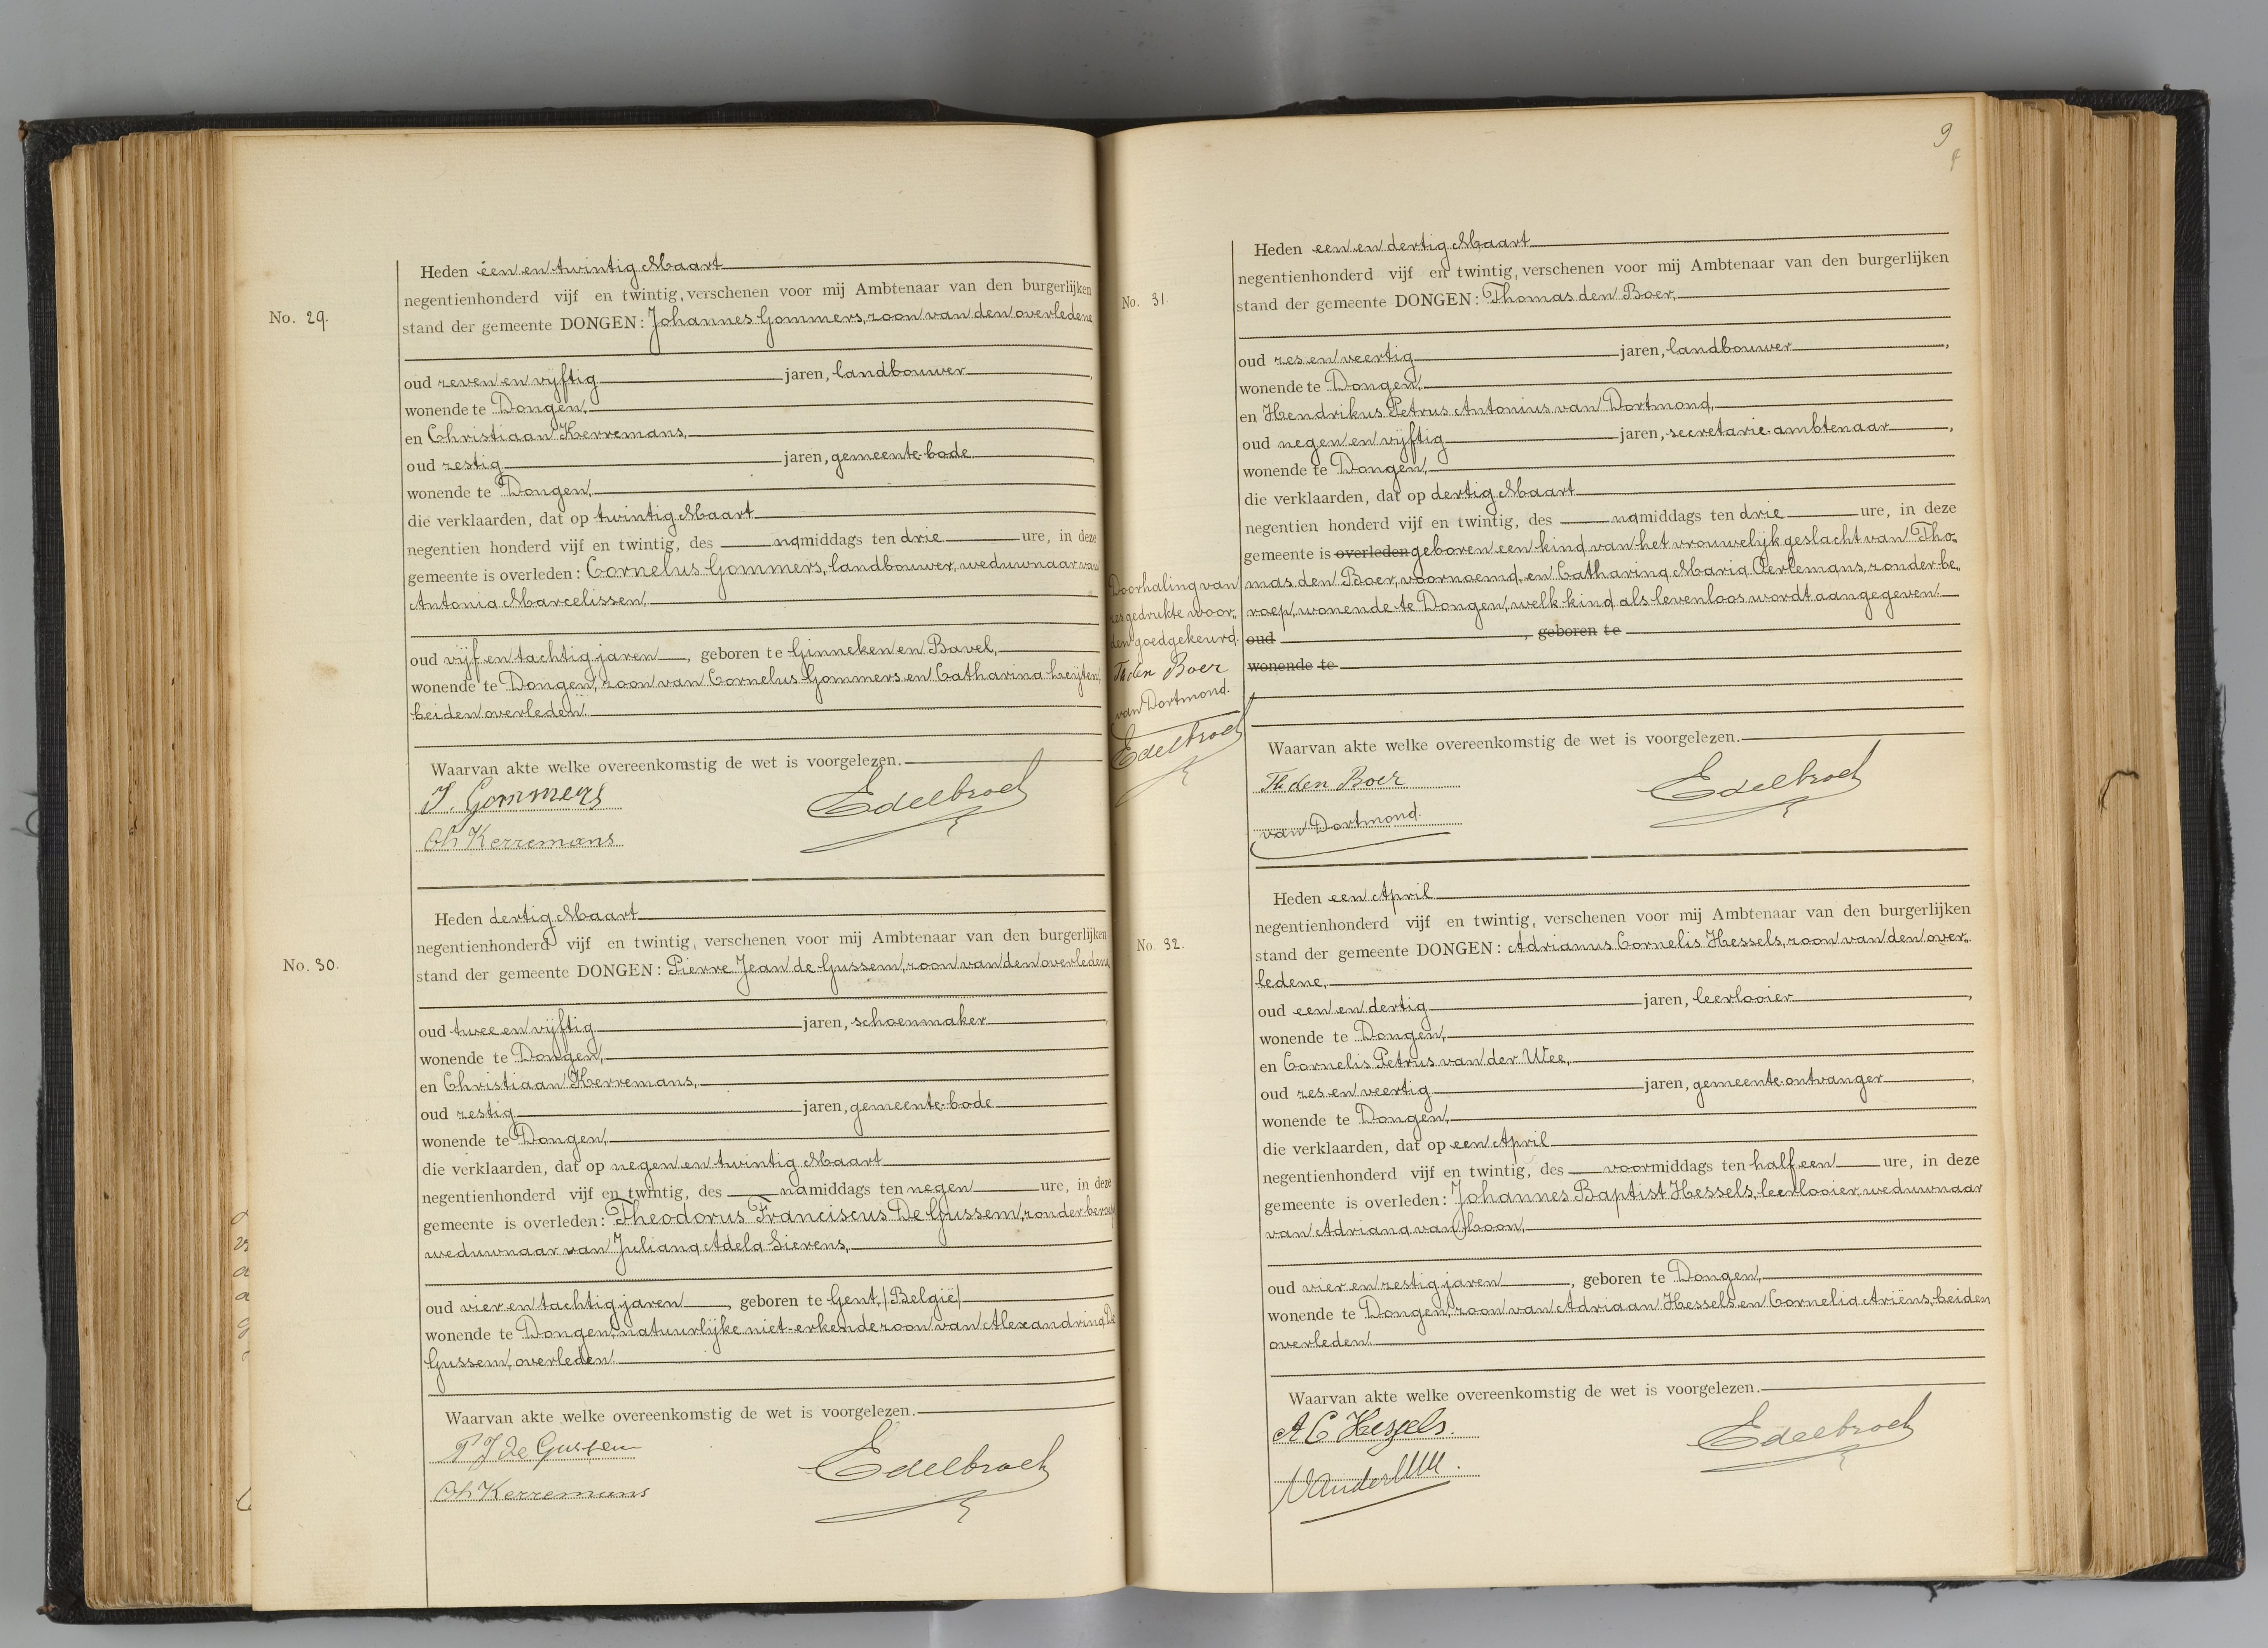 No. 29.
Heden één en twintig Maart
negentienhonderd vijf en twintig, verschenen voor mij Ambtenaar van den burgerlijken
stand der gemeente DONGEN: Johannes Gommers, zoon van den overledene,
oud zeven en vijftig jaren, landbouwer,
wonende te Dongen,
en Christiaan Kerremans,
oud zestig jaren, gemeente-bode,
wonende te Dongen,
die verklaarden, dat op twintig Maart
negentien honderd vijf en twintig, des namiddags ten drie ure, in deze
gemeente is overleden: Cornelus Gommers, landbouwer, weduwnaar van
Antonia Marcelissen,
oud vijf en tachtig jaren, geboren te Ginneken en Bavel,
wonende te Dongen, zoon van Cornelus Gommers en Catharina Leijten,
beiden overleden.
Waarvan akte welke overeenkomstig de wet is voorgelezen.
J. Gommers
Edelbroek
Ch Kerremans
No. 30.
Heden dertig Maart
negentienhonderd vijf en twintig, verschenen voor mij Ambtenaar van den burgerlijken
stand der gemeente DONGEN: Pierre Jean de Gussem, zoon van den overledene,
oud twee en vijftig jaren, schoenmaker,
wonende te Dongen,
en Christiaan Kerremans,
oud zestig jaren, gemeente-bode,
wonende te Dongen,
die verklaarden, dat op negen en twintig Maart
negentienhonderd vijf en twintig, des namiddags ten negen ure, in deze
gemeente is overleden: Theodorus Franciscus De Gussem, zonder beroep
weduwnaar van Juliana Adela Sierens,
oud vier en tachtig jaren, geboren te Gent, (België)
wonende te Dongen, natuurlijke niet-erkende zoon van Alexandrina De
Gussem, overleden.
Waarvan akte welke overeenkomstig de wet is voorgelezen.
P J De Gussem
Edelbroek
Ch Kerremans
9
No. 31.
Heden een en dertig Maart
negentienhonderd vijf en twintig, verschenen voor mij Ambtenaar van den burgerlijken
stand der gemeente DONGEN: Thomas den Boer,
oud zes en veertig jaren, landbouwer,
wonende te Dongen,
en Hendrikus Petrus Antonius van Dortmond,
oud negen en vijftig jaren, secretarie-ambtenaar,
wonende te Dongen,
die verklaarden, dat op dertig Maart
negentien honderd vijf en twintig, des namiddags ten drie ure, in deze
gemeente is overleden geboren een kind van het vrouwelijk geslacht van Tho-
mas den Boer, voornoemd, en Catharina Maria Oerlemans, zonder be-
roep, wonende te Dongen, welk kind als levenloos wordt aangegeven.
oud , geboren te
wonende te
Doorhaling van
zes gedrukte woor-
den goedgekeurd.
Th den Boer
van Dortmond.
Edelbroek
Waarvan akte welke overeenkomstig de wet is voorgelezen.
Th den Boer
Edelbroek
van Dortmond.
No. 32.
Heden een April
negentienhonderd vijf en twintig, verschenen voor mij Ambtenaar van den burgerlijken
stand der gemeente DONGEN: Adrianus Cornelis Hessels, zoon van den over-
ledene,
oud een en dertig jaren, leerlooier,
wonende te Dongen,
en Cornelis Petrus van der Wee,
oud zes en veertig jaren, gemeente-ontvanger,
wonende te Dongen,
die verklaarden, dat op een April
negentienhonderd vijf en twintig, des voormiddags ten half een ure, in deze
gemeente is overleden: Johannes Baptist Hessels, leerlooier, weduwnaar
van Adriana van Loon,
oud vier en zestig jaren, geboren te Dongen,
wonende te Dongen, zoon van Adriaan Hessels en Cornelia Ariëns, beiden
overleden.
Waarvan akte welke overeenkomstig de wet is voorgelezen.
A C Hessels.
Edelbroek